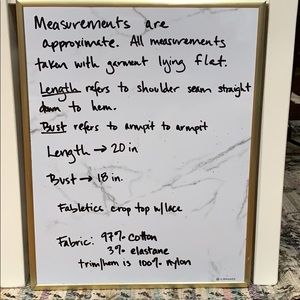 Measurements are
approximate. All measurements
taken with garment lying flat.
Length refers to shoulder seam straight
down to hem.
Bust refers to armpit to armpit
Length → 20 in
Bust → 18 in.
Fabletics crop top w/lace
Fabric: 97% cotton
3% elastane
trim/hem is 100% nylon